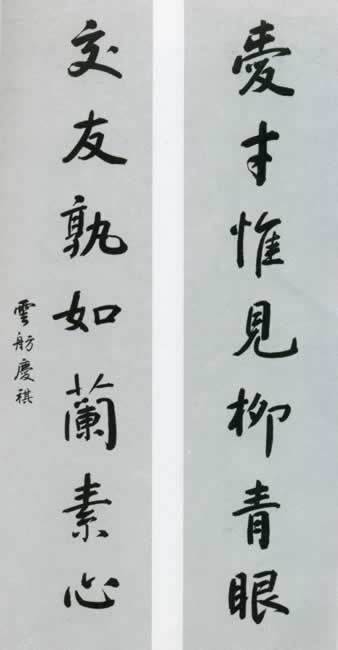 愛才惟見柳青眼
交友孰如蘭素心
雲舫慶祺